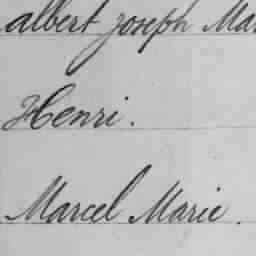 albert joseph Mar
Henri.
Marcel Marie.